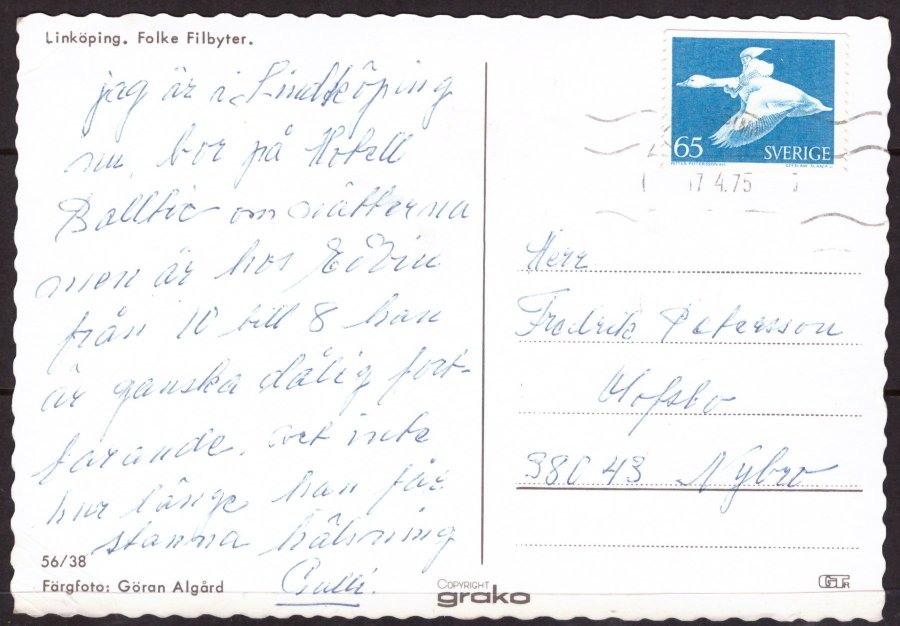 Linköping. Folke Filbyter.
jag är i Lindköping
nu, bor på Hotell
Balltic om nätterna
men är hos Edvin
från 10 till 8 han
är ganska dålig fort-
farande, vet inte
hur länge han får
stanna hälsning
56/38
Färgfoto: Göran Algård
COPYRIGHT
grako
65 SVERIGE
17 4.75
Herr
Fredrik Petersson
38043 Nybro